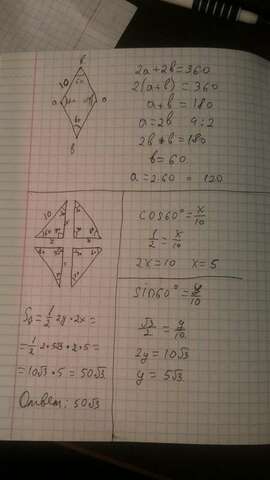 b
60
10
a
120
120
a
60
b
2a+2b=360
2(a+b)=360
a+b=180
a=2b 9:2
2b+b=180
b=60
a=2·60 = 120
10
cos60°=x/10
1/2=x/10
2x=10 x=5
sin60°=y/10
√3/2=y/10
2y=10√3
y=5√3
S=1/2 2y·2x=
=1/2·2·5√3·2·5=
=10√3·5=50√3.
Ответ: 50√3